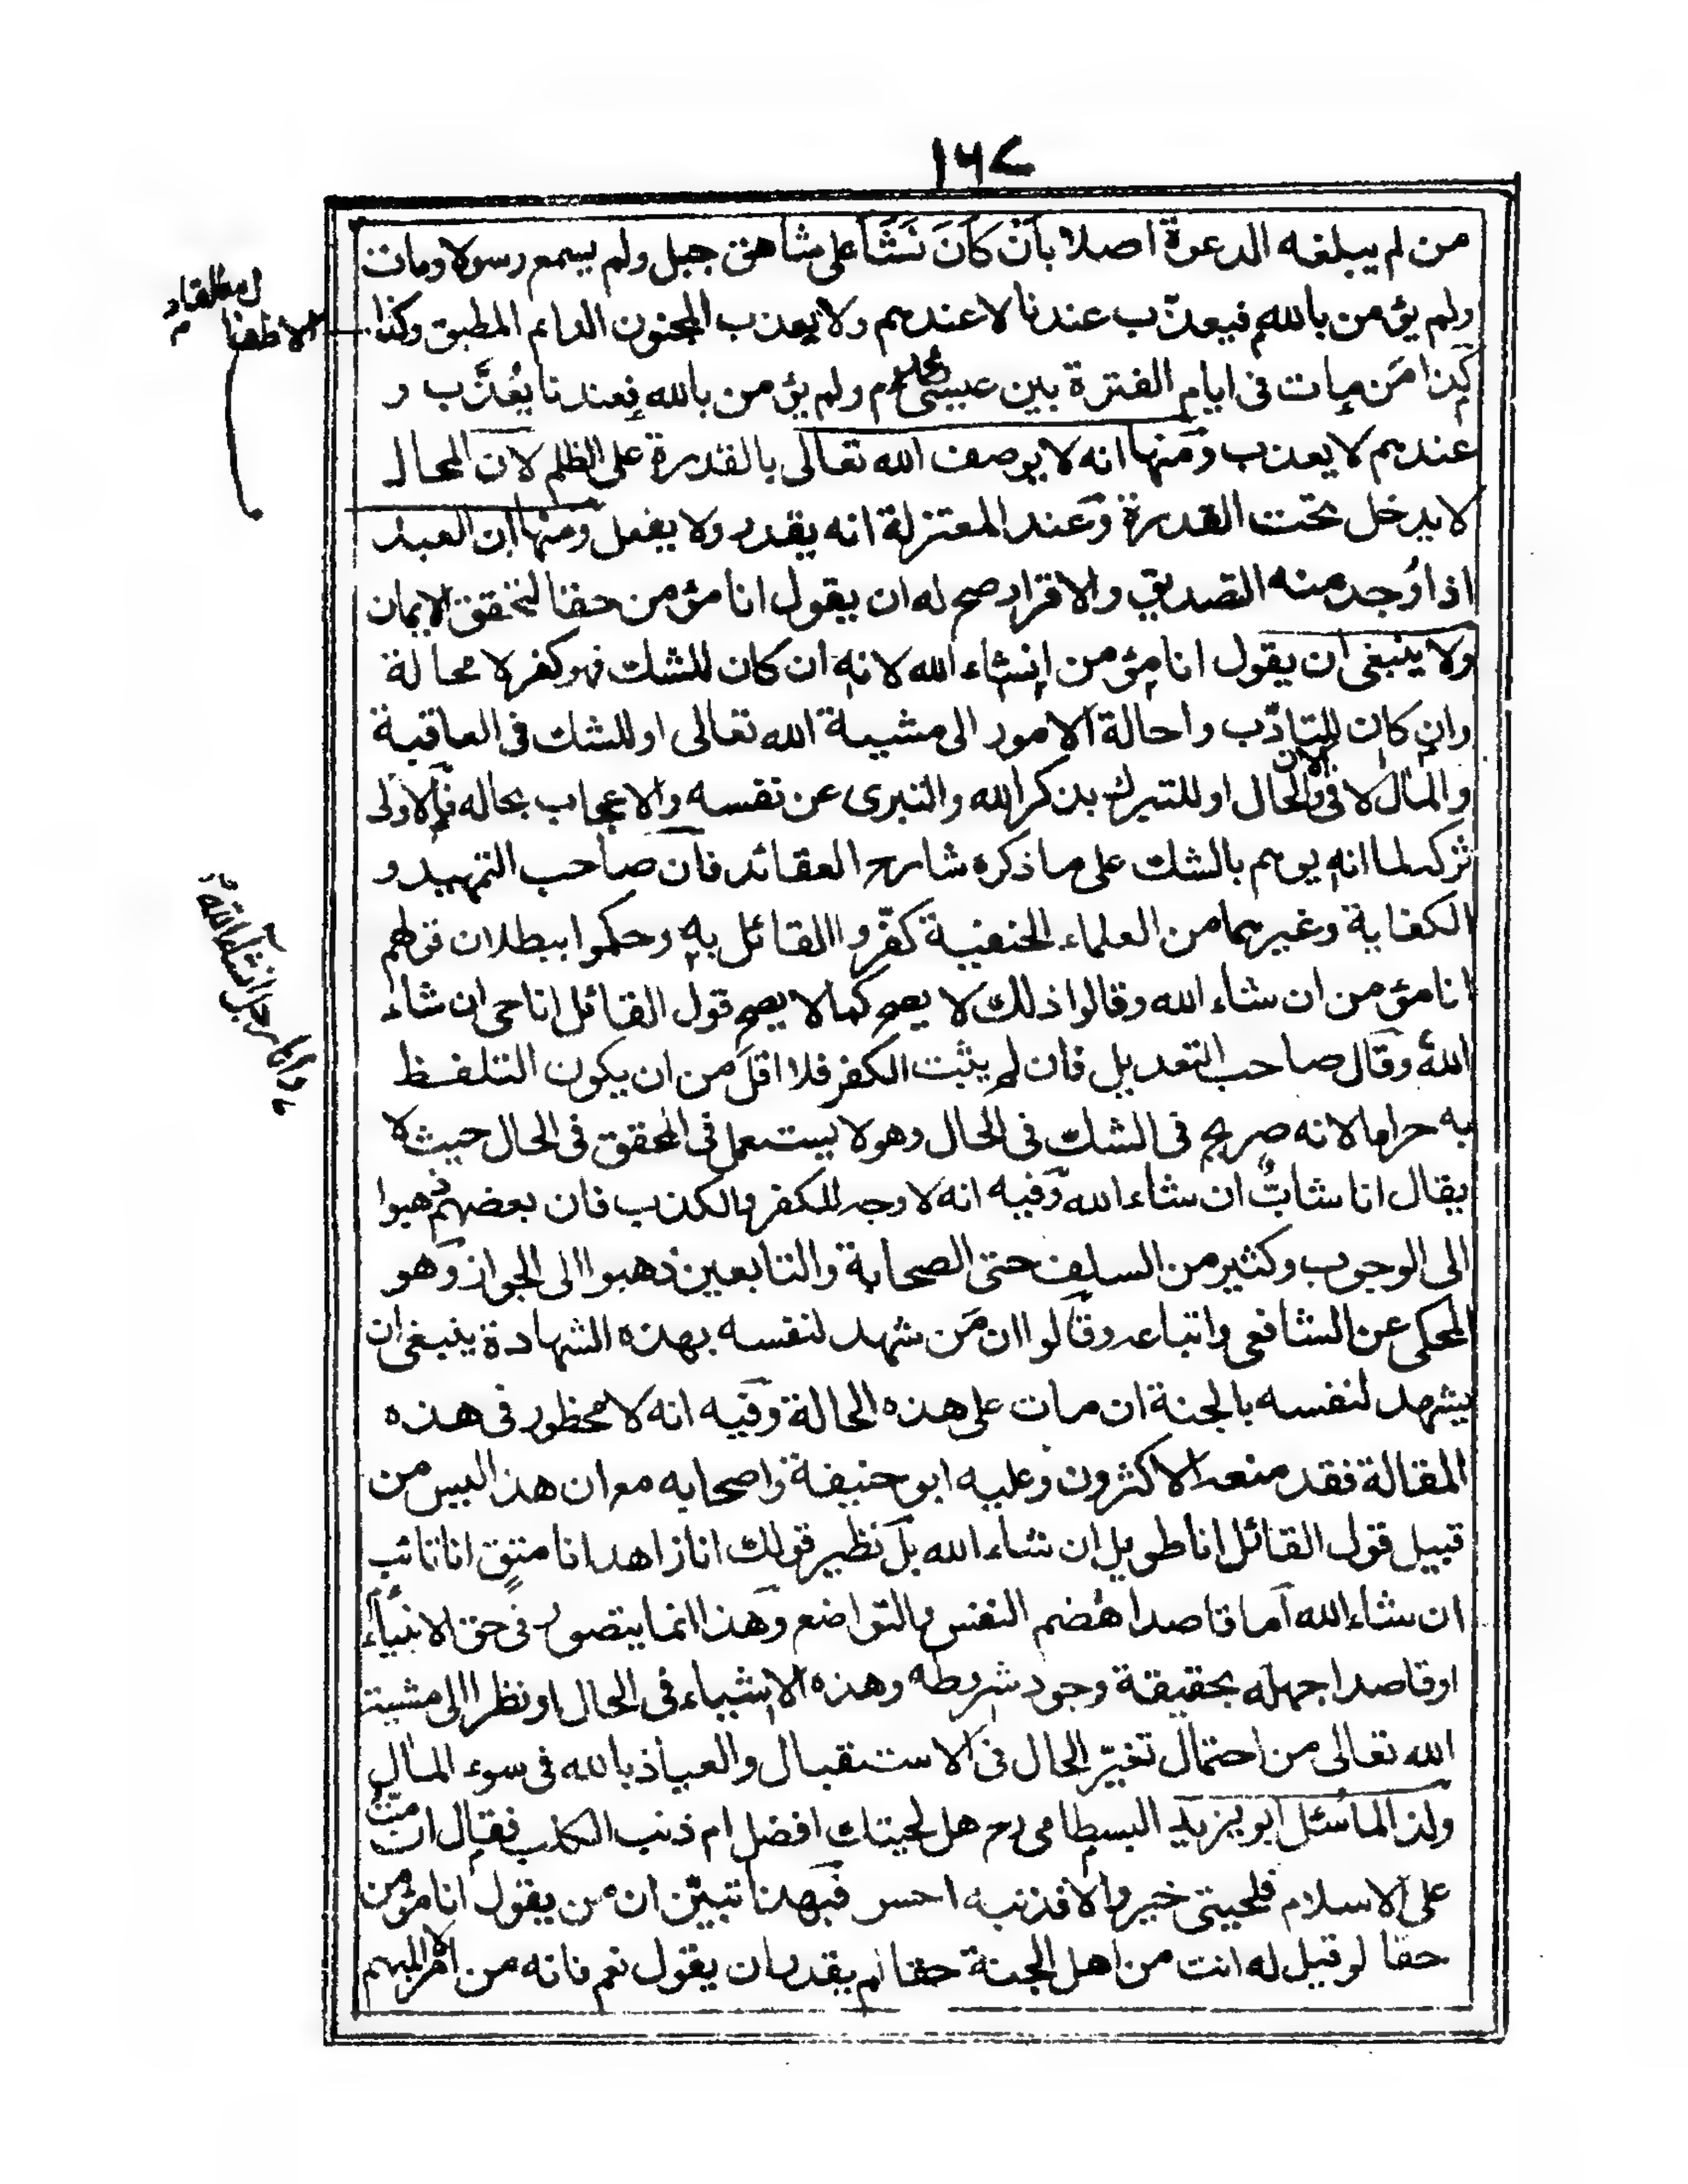 ١٦٧
من لم يبلغه الدعوة اصلا بان كان نشأ على شاهق جبل ولم يسمع رسولا ومات
ولم يؤمن بالله فيعذّب عندنا لا عندهم ولا يعذب المجنون الدائم المطبق وكذا
الاطفال مطلقا
كذا من مات فى ايام الفترة بين عيسى ومحمد ولم يؤمن بالله فعندنا يعذّب و
عندهم لا يعذب ومنها انه لا يوصف الله تعالى بالقدرة على الظلم لان المحال
لا يدخل تحت القدرة وعند المعتزلة انه يقدر ولا يفعل ومنها ان العبد
اذا وُجد منه التصديق والاقرار صح له ان يقول انا مؤمن حقا لتحقق الايمان
ولا ينبغى ان يقول انا مؤمن انشاء الله لانه ان كان للشك فهو كفر لا محالة
وان كان للتادّب واحالة الامور الى مشيية الله تعالى او للشك فى العاقبة
والمال لا فى الان والحال او للتبرك بذكر الله والتبرى عن نفسه والاعجاب بحاله فالاولى
تركه لما انه يوهم بالشك على ما ذكره شارح العقائد فان صاحب التمهيد و
الكفاية وغيرهما من العلماء الحنفية كفّروا القائل به وحكموا ببطلان قولهم
انا مؤمن ان شاء الله وقالوا ذلك لا يصح كما لا يصح قول القائل انا حى ان شاء
الله وقال صاحب التعديل فان لم يثبت الكفر فلا اقل من ان يكون التلفظ
او انا رجل انشاء الله
به حراما لانه صريح فى الشك فى الحال وهو لا يستعمل فى المحقق فى الحال حيث لا
يقال انا شابٌ ان شاء الله وفيه انه لا وجه للكفر والكذب فان بعضهم ذهبوا
الى الوجوب وكثير من السلف حتى الصحابة والتابعين ذهبوا الى الجواز وهو
المحكى عن الشافعى واتباعه وقالوا ان من شهد لنفسه بهذه الشهادة ينبغى ان
يشهد لنفسه بالجنة ان مات على هذه الحالة وفيه انه لا محظور فى هذه
المقالة فقد منعه الاكثرون وعليه ابو حنيفة واصحابه مع ان هذا ليس من
قبيل قول القائل انا طويل ان شاء الله بل نظير قولك انا زاهد انا متقٍ انا تائب
ان شاء الله اما قاصدا هضم النفس والتواضع وهذا انما يتصور فى حق الانبياء
او قاصدا جهله بحقيقة وجود شروطه وهذه الاشياء فى الحال او نظرا الى مشيته
الله تعالى من احتمال تغيّر الحال فى الاستقبال والعياذ بالله فى سوء المال
ولذا لما سئل ابو يزيد البسطامى رح هل لحيتك افضل ام ذنب الكلب فقال ان متُّ
على الاسلام فلحيتى خير والا فذنبه احسن فبهذا تبيّن ان من يقول انا مؤمن
حقا لو قيل له انت من اهل الجنة حقا لم يقدر ان يقول نعم فانه من الامر المبهم